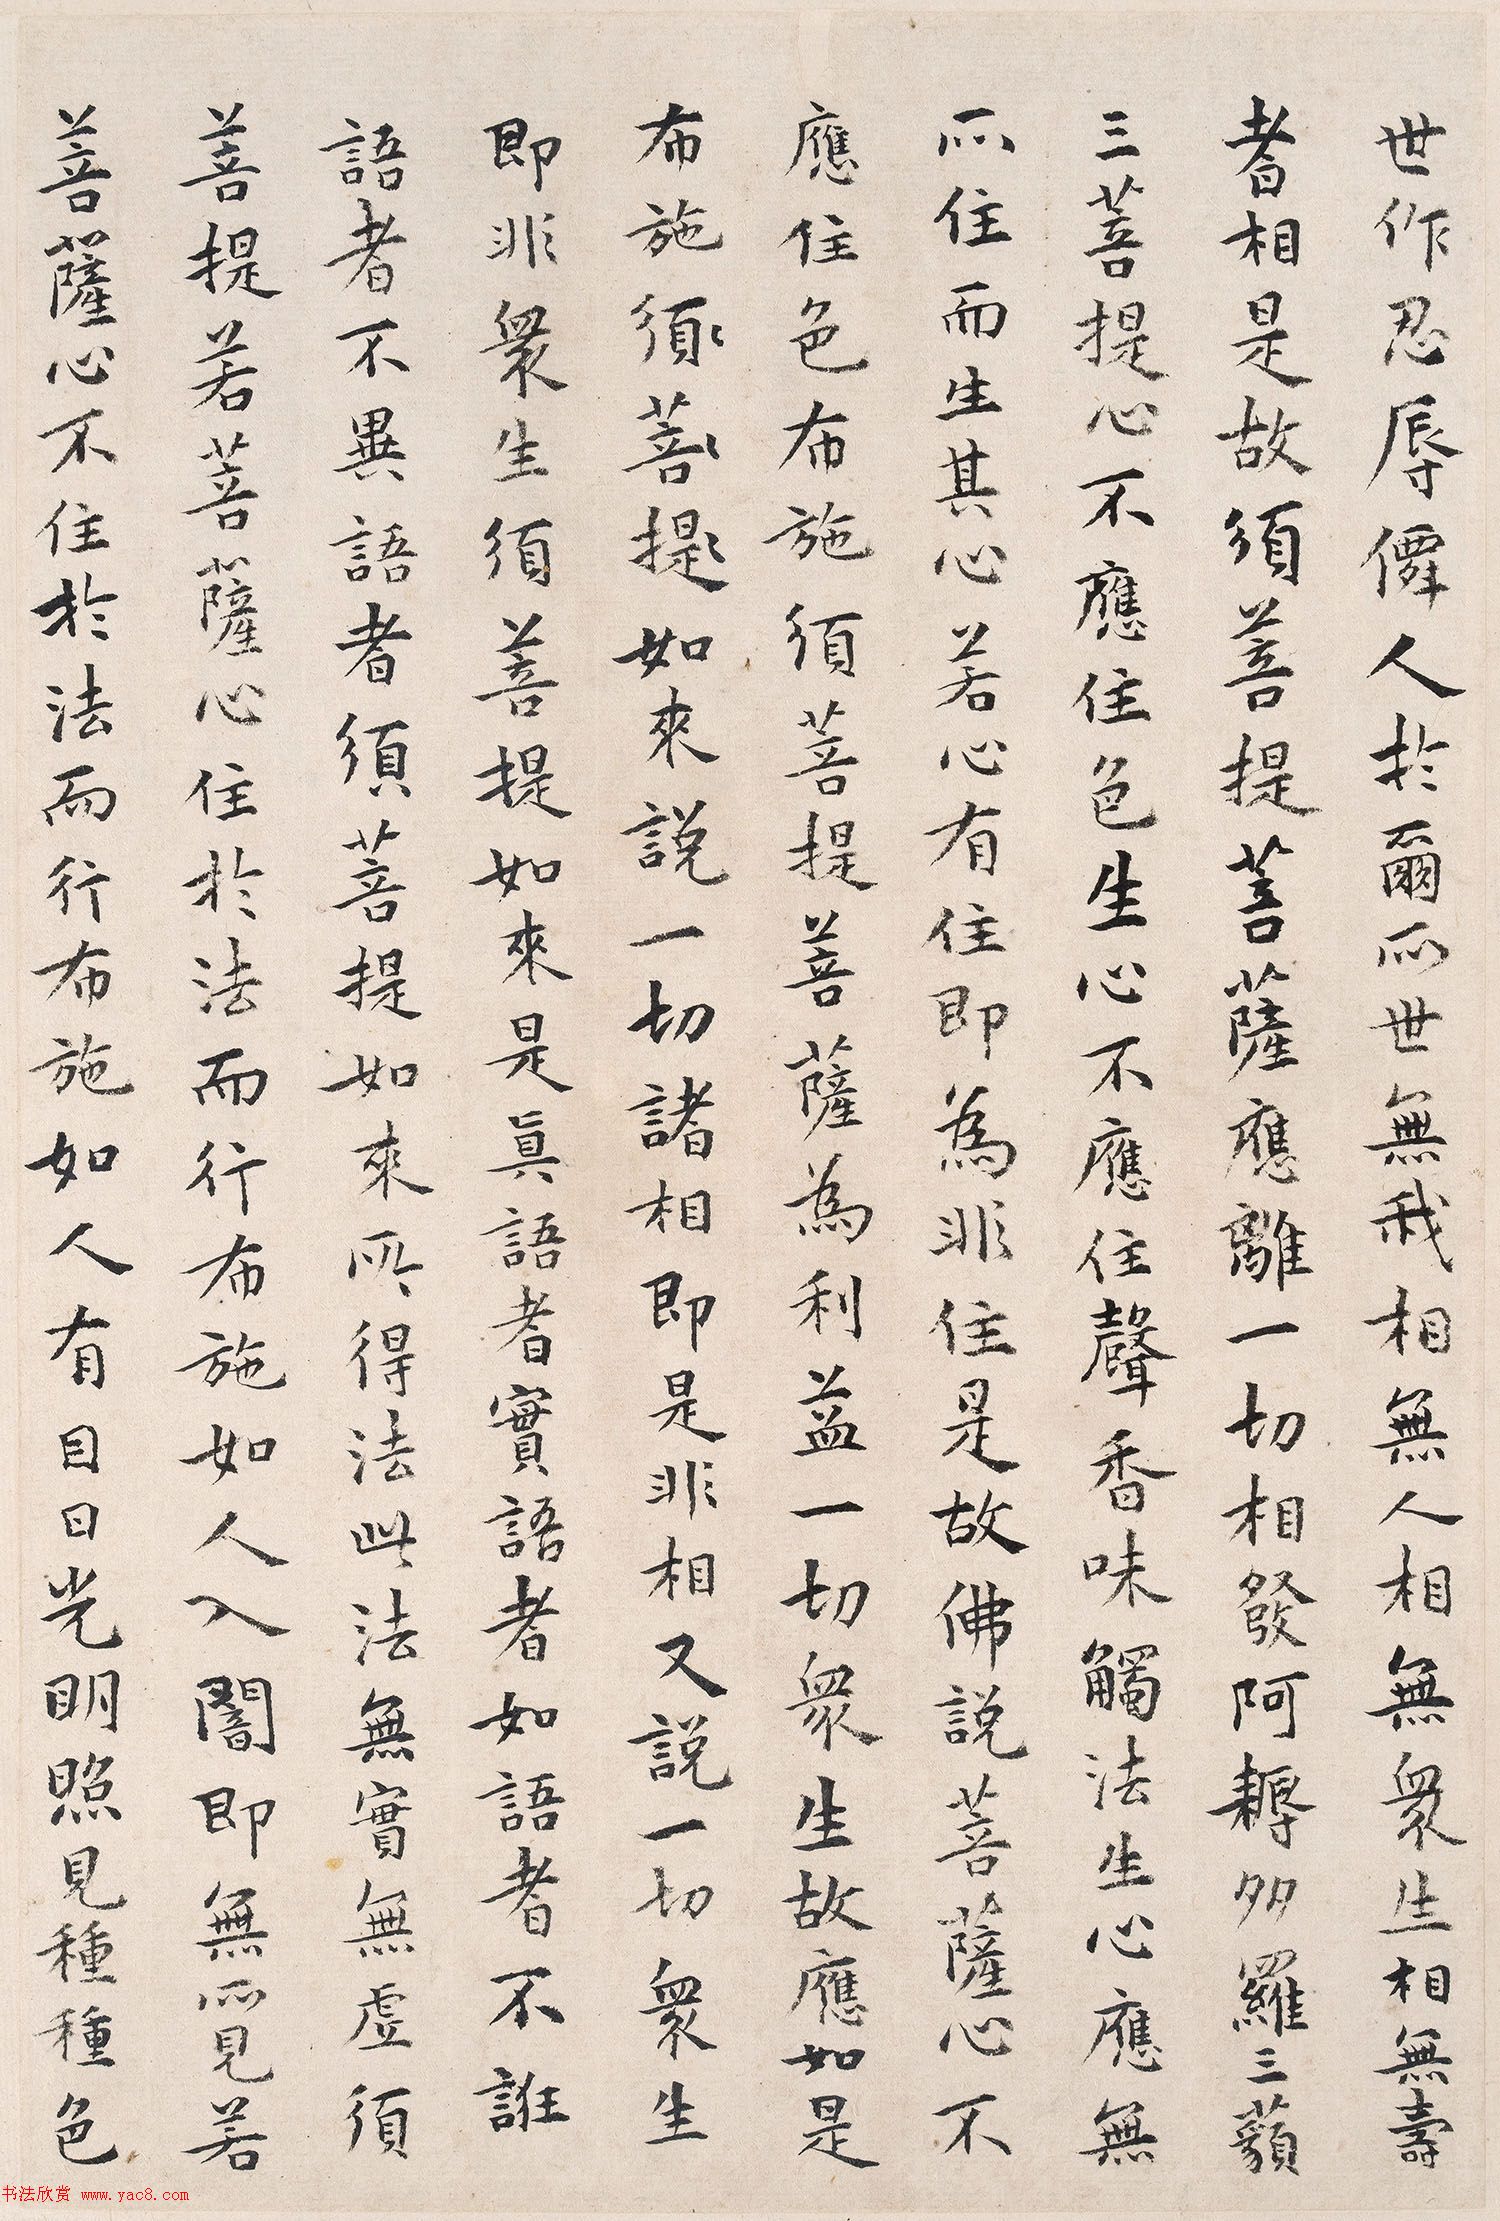 世作忍辱僊人於爾所世無我相無人相無衆生相無壽
者相是故須菩提菩薩應離一切相發阿耨多羅三藐
三菩提心不應住色生心不應住聲香味觸法生心應無
所住而生其心若心有住即為非住是故佛說菩薩心不
應住色布施須菩提菩薩為利益一切衆生故應如是
布施須菩提如來說一切諸相即是非相又說一切衆生
即非衆生須菩提如來是真語者實語者如語者不誑
語者不異語者須菩提如來所得法此法無實無虛須
菩提若菩薩心住於法而行布施如人入闇即無所見若
菩薩心不住於法而行布施如人有目日光明照見種種色
书法欣赏 www.yac8.com